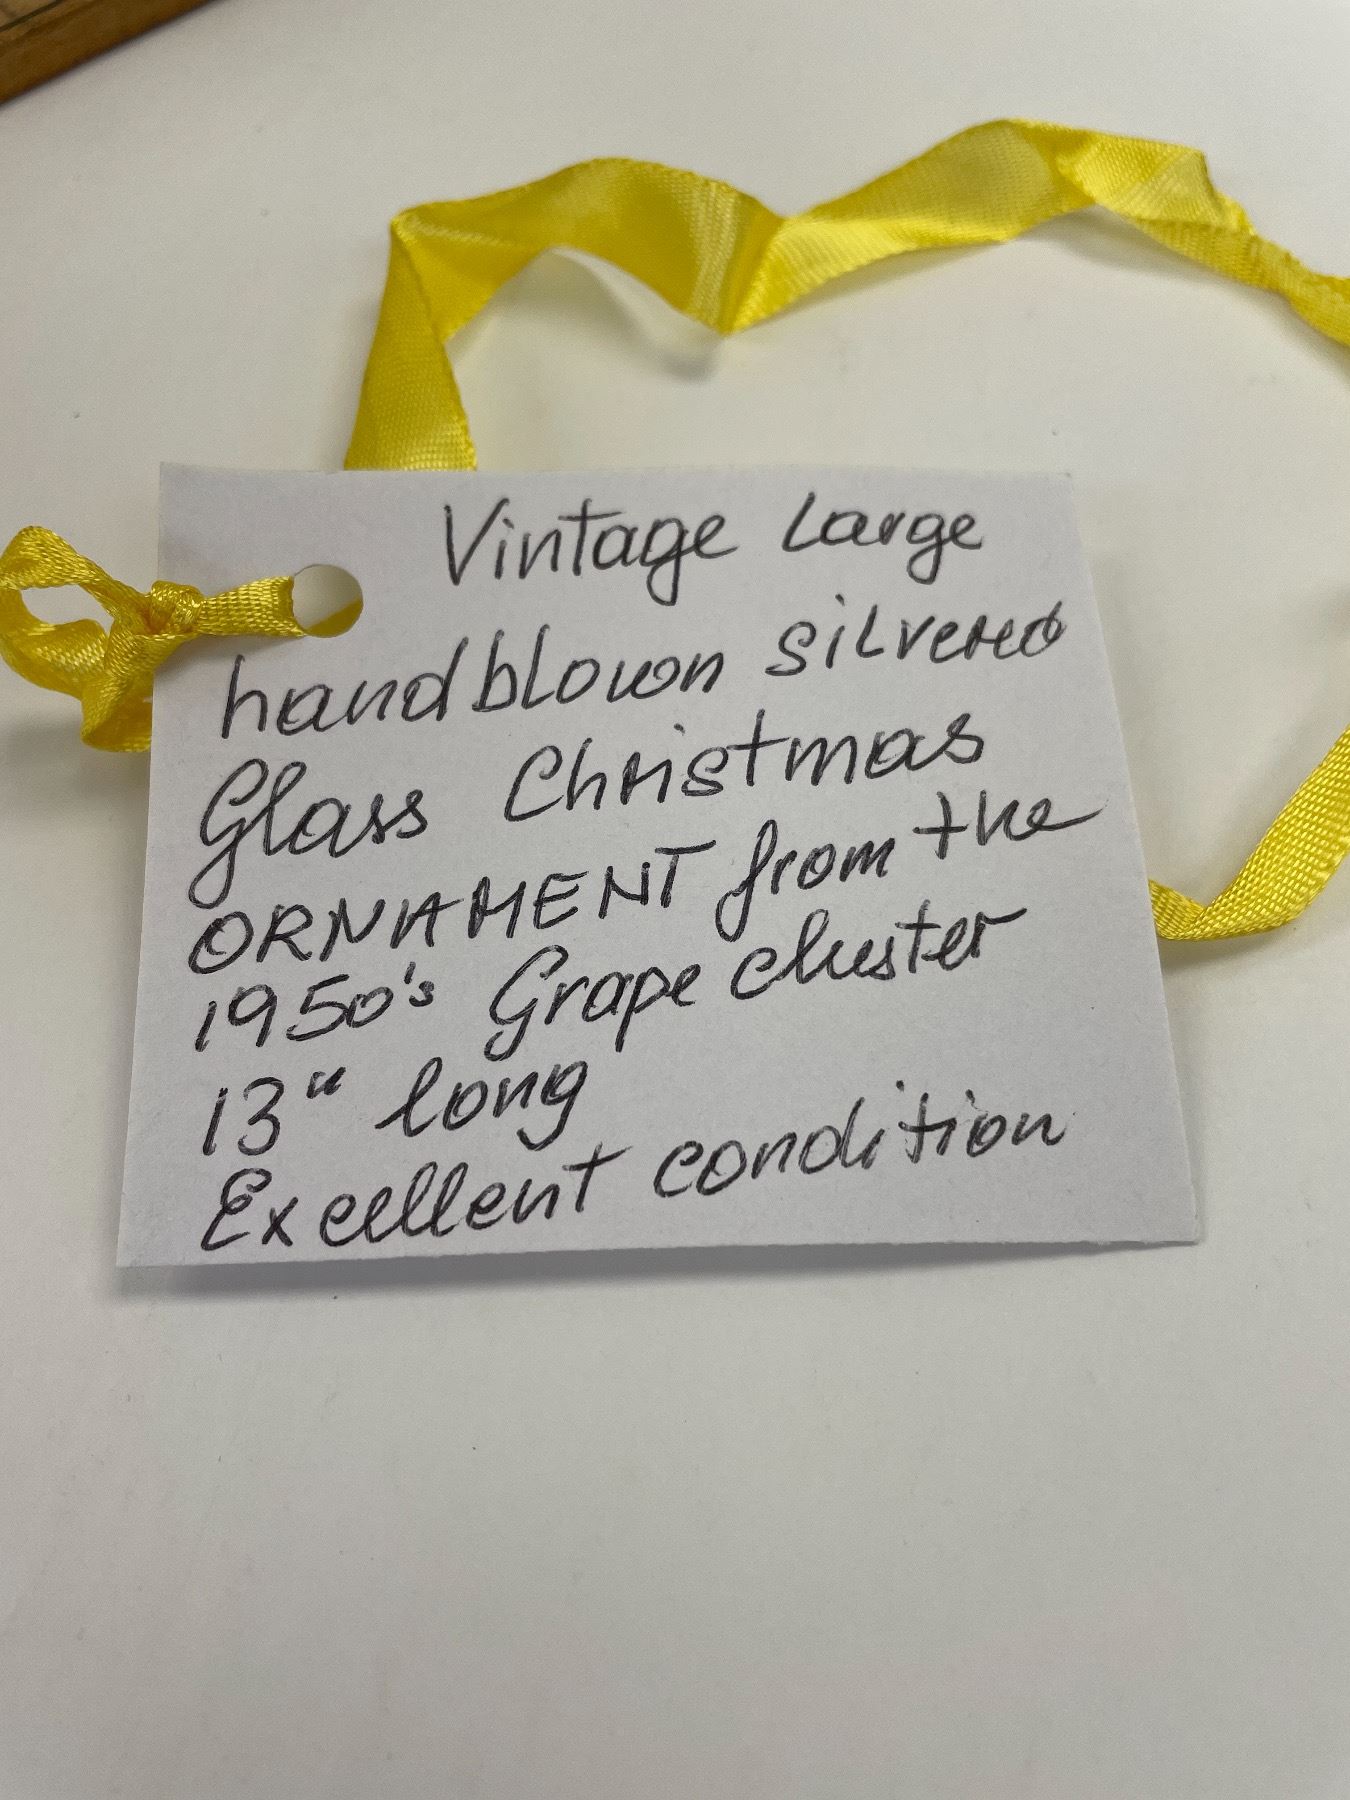 Vintage Large
handblown silvered
Glass Christmas
ORNAMENT from the
1950's Grape cluster
13" long
Excellent condition